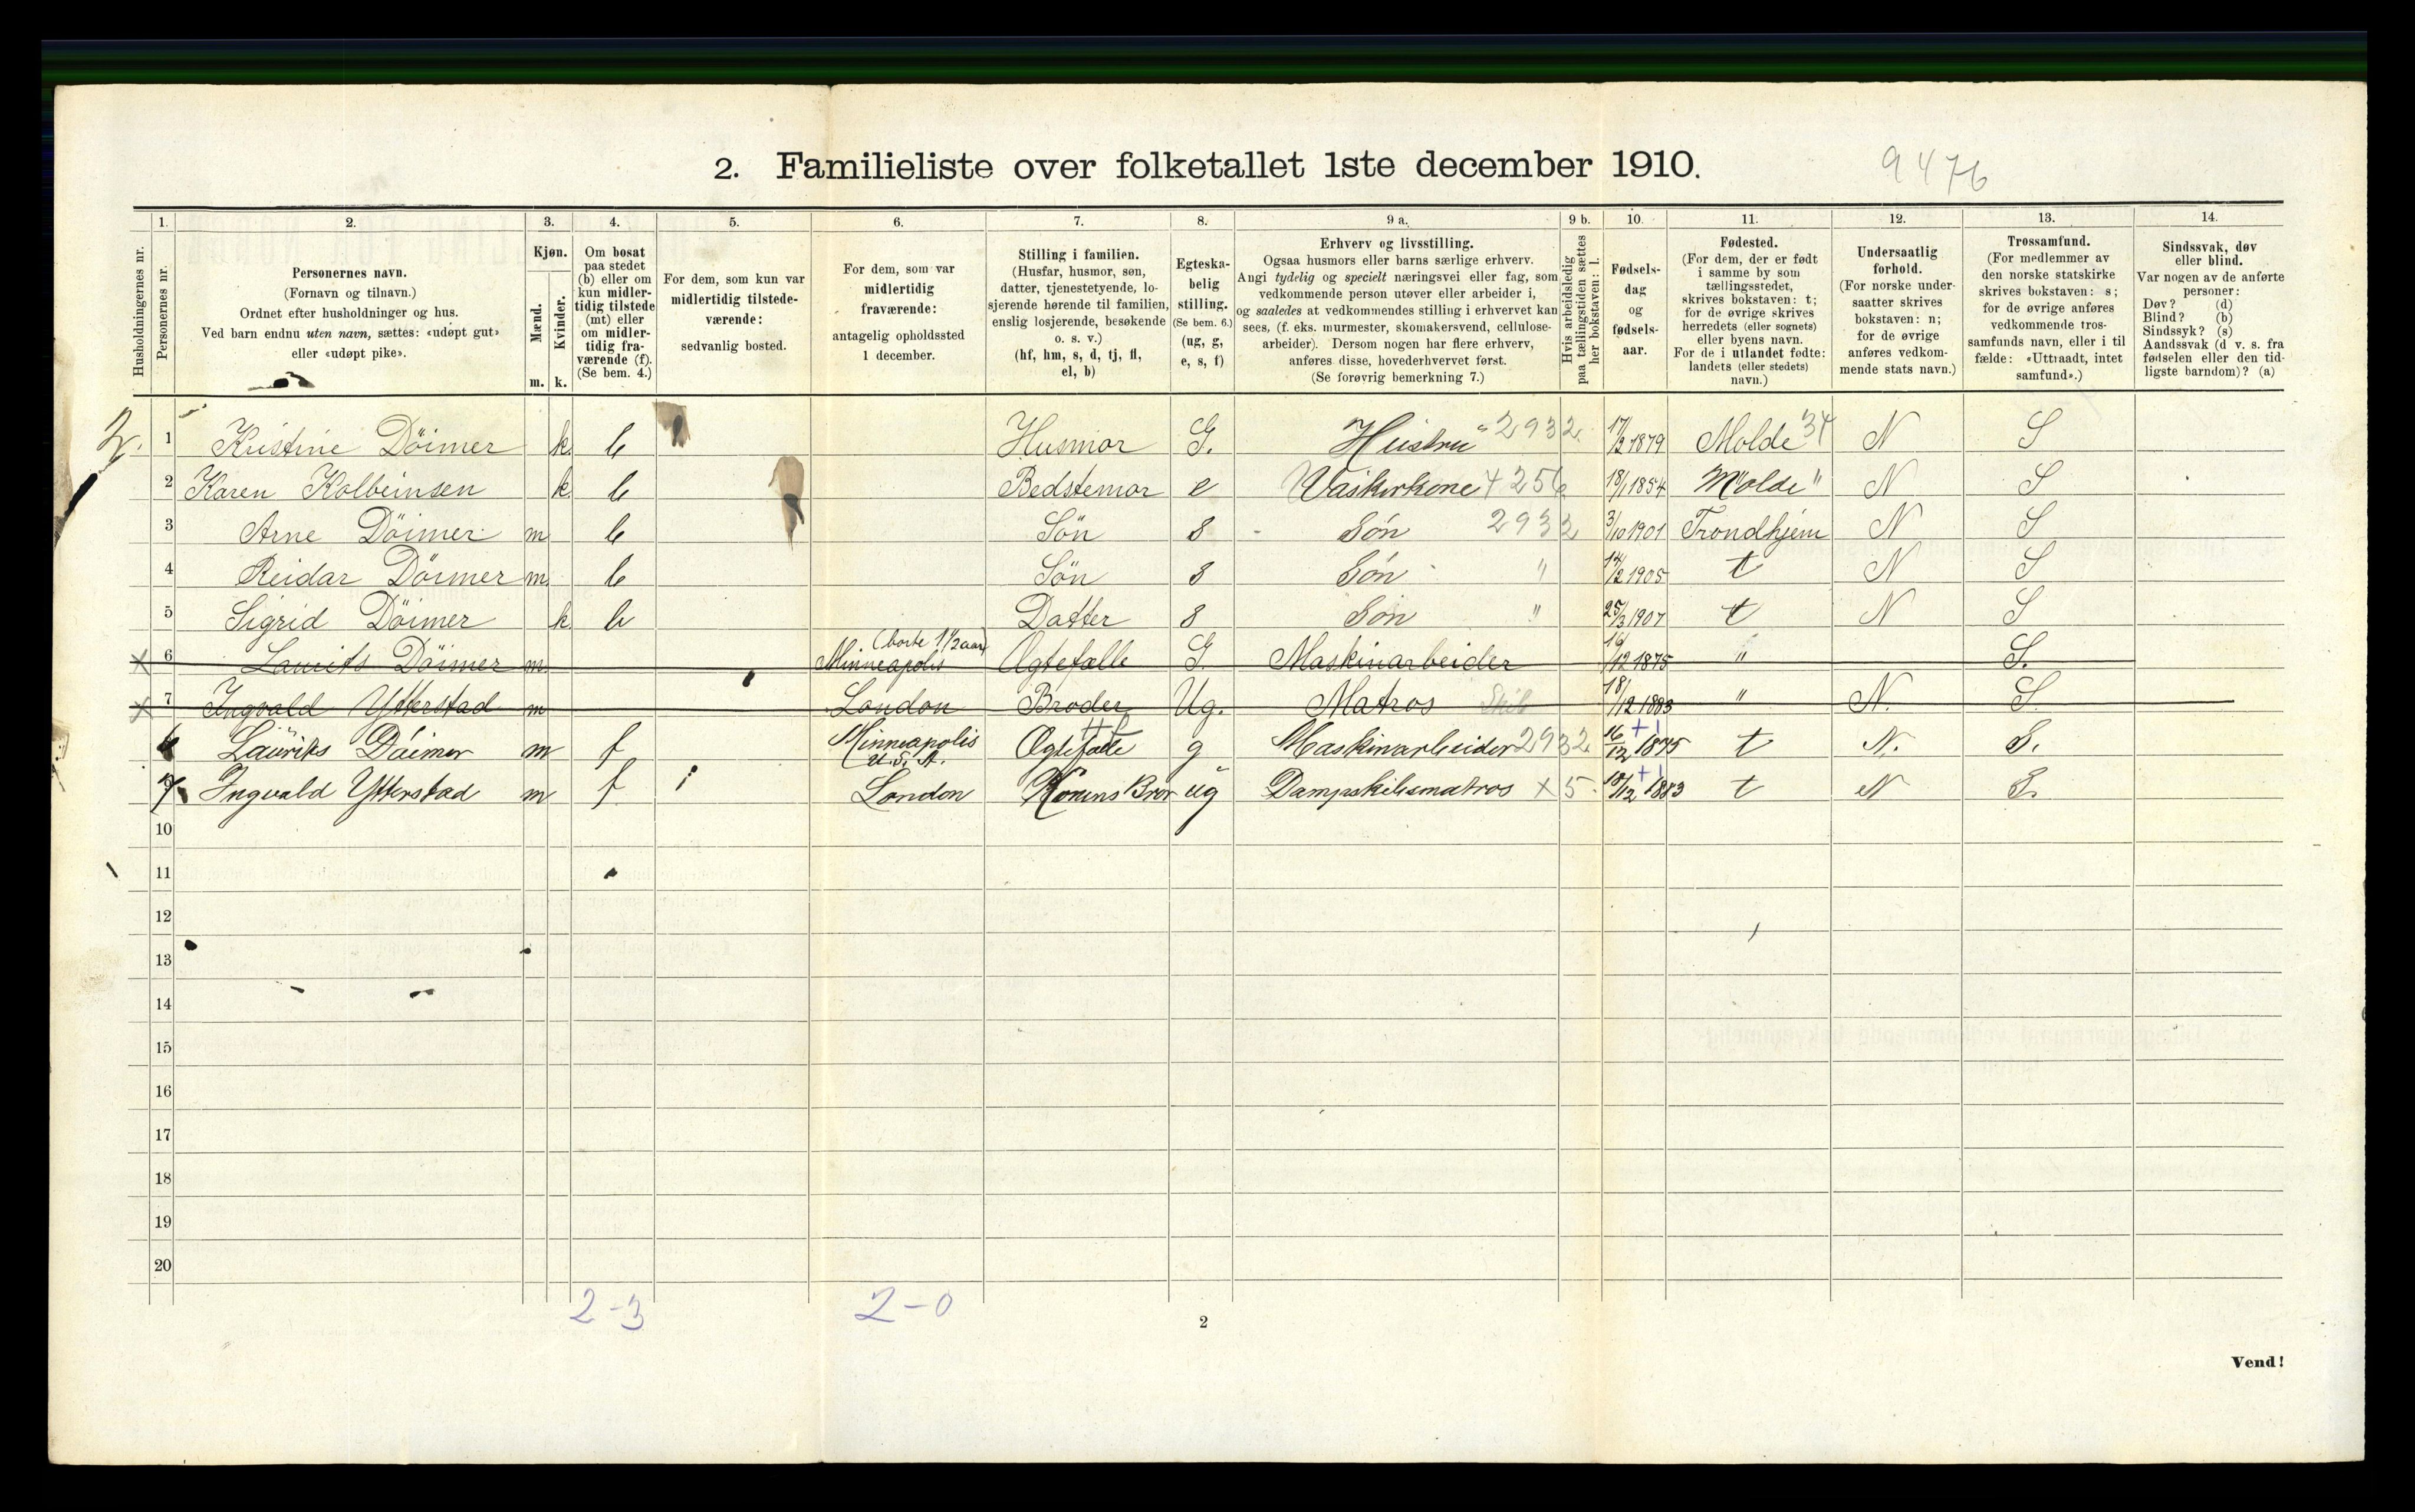 2. Familieliste over folketallet 1ste december 1910.
9476
1. 2. 3. 4. 5. 6. 7. 8. 9 a. 9 b. 10. 11. 12. 13. 14.
Husholdningernes nr.
Personernes nr.
Personernes navn.
(Fornavn og tilnavn.)
Ordnet efter husholdninger og hus.
Ved barn endnu uten navn, sættes: «udøpt gut»
eller «udøpt pike».
Kjøn.
Mænd.
Kvinder.
m. k.
Om bosat
paa stedet
(b) eller om
kun midler-
tidig tilstede
(mt) eller
om midler-
tidig fra-
værende (f).
(Se bem. 4.)
For dem, som kun var
midlertidig tilstede-
værende:
sedvanlig bosted.
For dem, som var
midlertidig
fraværende:
antagelig opholdssted
1 december.
Stilling i familien.
(Husfar, husmor, søn,
datter, tjenestetyende, lo-
sjerende hørende til familien,
enslig losjerende, besøkende
o. s. v.)
(hf, hm, s, d, tj, fl,
el, b)
Egteska-
belig
stilling.
(Se bem. 6.)
(ug, g,
e, s, f)
Erhverv og livsstilling.
Ogsaa husmors eller barns særlige erhverv.
Angi tydelig og specielt næringsvei eller fag, som
vedkommende person utøver eller arbeider i,
og saaledes at vedkommendes stilling i erhvervet kan
sees, (f. eks. murmester, skomakersvend, cellulose-
arbeider). Dersom nogen har flere erhverv,
anføres disse, hovederhvervet først.
(Se forøvrig bemerkning 7.)
Hvis arbeidsledig
paa tællingstiden sættes
her bokstaven: l.
Fødsels-
dag
og
fødsels-
aar.
Fødested.
(For dem, der er født
i samme by som
tællingsstedet,
skrives bokstaven: t;
for de øvrige skrives
herredets (eller sognets)
eller byens navn.
For de i utlandet fødte:
landets (eller stedets)
navn.)
Undersaatlig
forhold.
(For norske under-
saatter skrives
bokstaven: n;
for de øvrige
anføres vedkom-
mende stats navn.)
Trossamfund.
(For medlemmer av
den norske statskirke
skrives bokstaven: s;
for de øvrige anføres
vedkommende tros-
samfunds navn, eller i til
fælde: «Uttraadt, intet
samfund».)
Sindssvak, døv
eller blind.
Var nogen av de anførte
personer:
Døv? (d)
Blind? (b)
Sindssyk? (s)
Aandssvak (d v. s. fra
fødselen eller den tid-
ligste barndom)? (a)
2. 1 Kristine Döimer k. b Husmor G. Hustru " 2932 17/2 1879 Molde 34 N S
2 Karen Kolbeinsen k. b Bedstemor e Vaskerkone + 256 18/1 1854 Molde " N S
3 Arne Döimer m b Sön s - Søn 2932 3/10 1901 Trondhjem N S
4 Reidar Döimer m. b Sön s Søn " 14/2 1905 t N S
5 Sigrid Döimer k b Datter s Søn " 25/3 1907 t N S
(borte 1 1/2 aar)
x 6 Laurits Döimer m. Minneapolis Ægtefælle G. Maskinarbeider 16/12 1875 " S.
x 7 Ingvald Ytterstad m London Broder Ug. Matros Skib 18/12 1883 " N. S.
6 Lauritz Döimer m f Minneapolis Ægtefælle g Maskinarbeider 2932 16/12 1875 t N. S.
U. S. A.
7 Ingvald Ytterstad m f London Konens Bror ug Dampskibsmatros x 5 18/12 1883 t N S.
10
11
12
13
14
15
16
17
18
19
20
2-3 2-0
2
Vend!